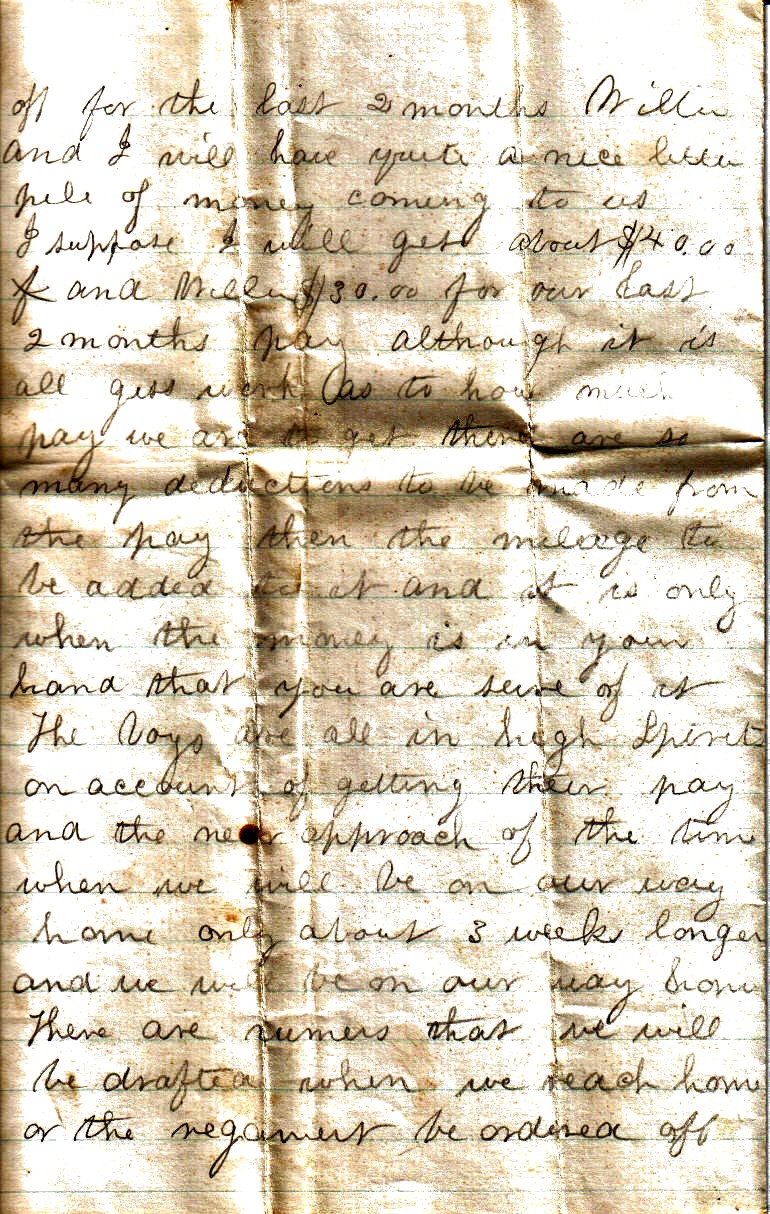 off for the last 2 months Willie
and I will have quite a nice little
pile of money coming to us
I suppose I will get about $40.00
and Willie $30.00 for our last
2 months pay although it is
all gess work as to how much
pay we are to get there are so
many deductions to be made from
the pay then the mileage to
be added to it and it is only
when the money is in your
hand that you are sure of it
The boys are all in high Spirits
on account of getting their pay
and the near approach of the time
when we will be on our way
home only about 3 weeks longer
and we will be on our way home
There are rumers that we will
be drafted when we reach home
or the regiment be ordered off